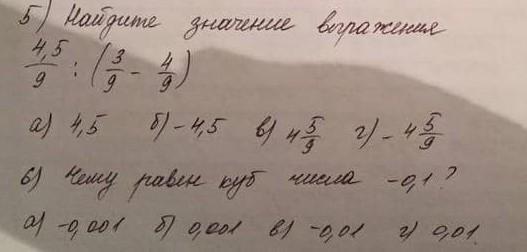 5) Найдите значение выражения
4,5/9 : (3/9 - 4/9)
а) 4,5 б) -4,5 в) 4 5/9 г) - 4 5/9
6) Чему равен куб числа -0,1?
а) -0,001 б) 0,001 в) -0,01 г) 0,01